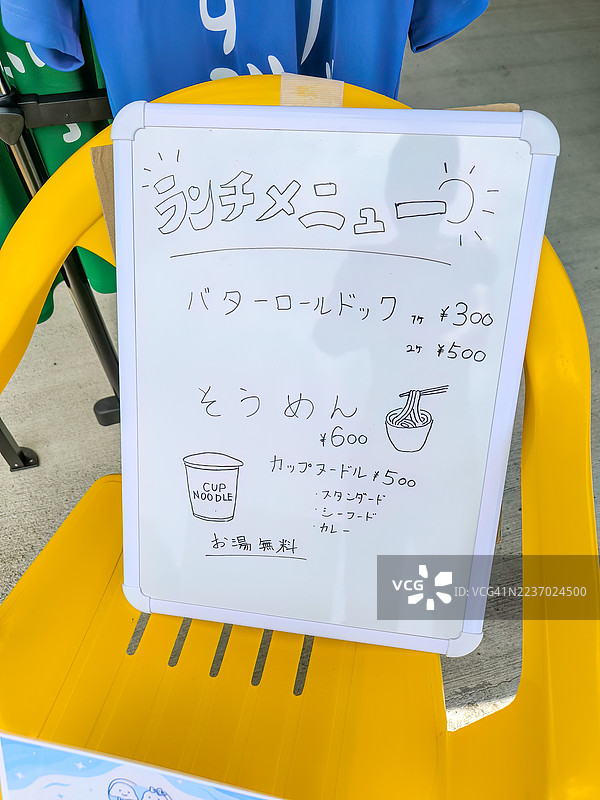 ランチメニュー
バターロールドック 1ケ ¥300
2ケ ¥500
そうめん
¥600
CUP
NOODLE
カップヌードル ¥500
・スタンダード
・シーフード
・カレー
お湯無料
VCG
ID: VCG41N2237024500